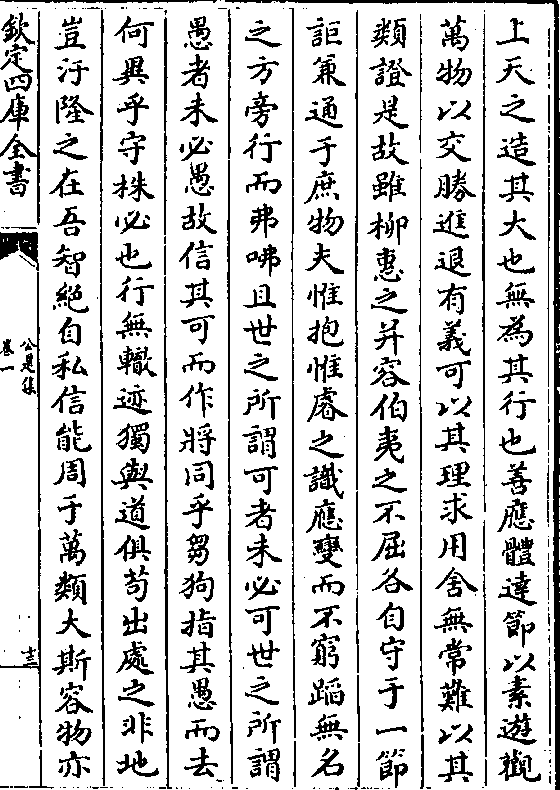 上天之造其大也無為其行也善應體達節以素遊觀
萬物以交勝進退有義可以其理求用舍無常難以其
類證是故雖柳惠之并容伯夷之不屈各自守于一節
詎兼通于庶物夫惟抱惟睿之識應變而不窮蹈無名
之方旁行而弗咈且世之所謂可者未必可世之所謂
愚者未必愚故信其可而作將同乎芻狗指其愚而去
何異乎守株必也行無轍迹獨與道俱苟出處之非地
豈汙隆之在吾智絶自私信能周于萬類大斯容物亦
欽定四庫全書
公是集
卷一
十三